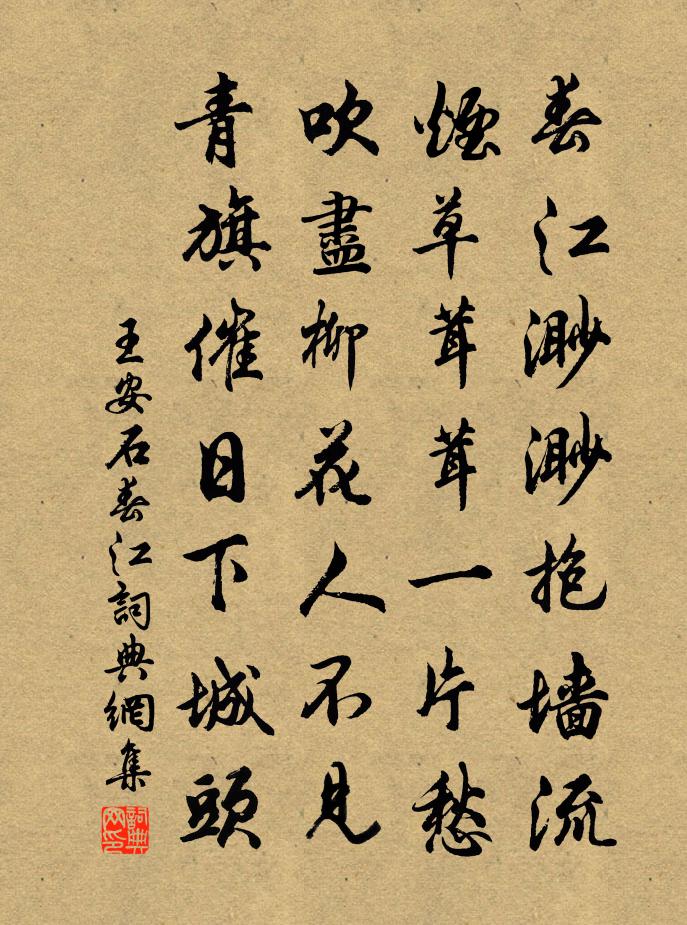 春江渺渺抱墙流
煙草茸茸一片愁
吹盡柳花人不見
青旗催日下城頭
王安石春江詞典網集
詞典網印